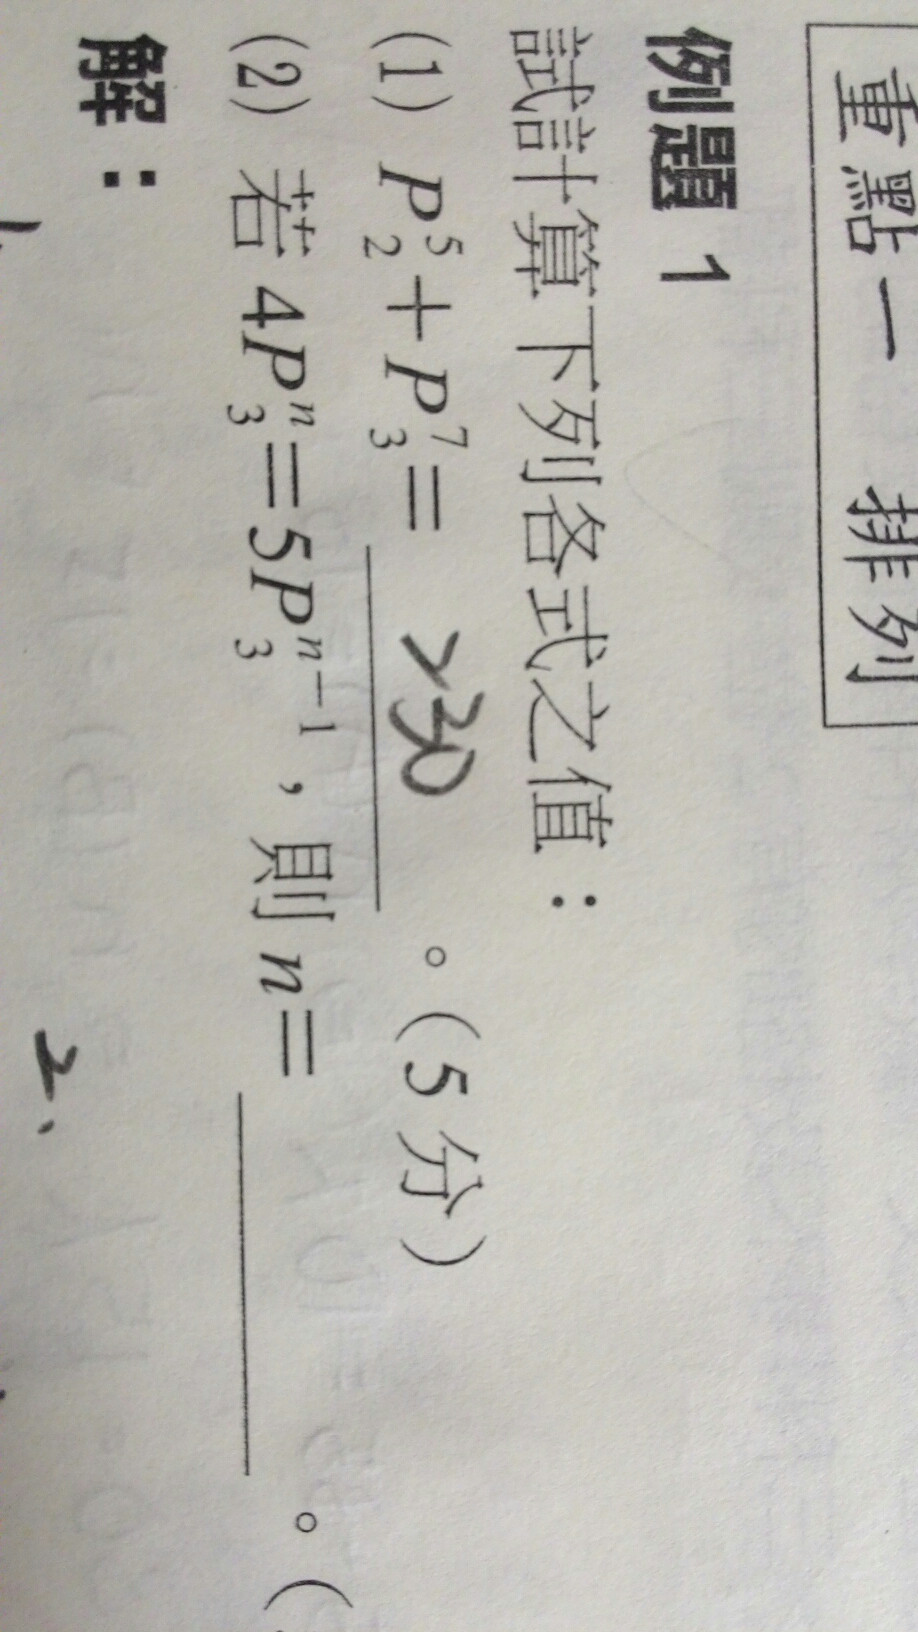 重點一 排列
例題 1
試計算下列各式之值：
(1) P⁵₂+P⁷₃= 230 。(5分)
(2) 若 4Pⁿ₃=5Pⁿ⁻¹₃，則 n= 。(
解：
2.